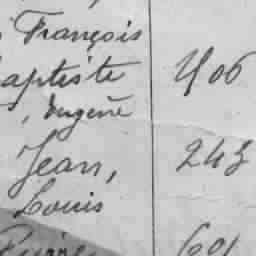 François
aptiste 406
, Eugène
Jean, 243
Louis